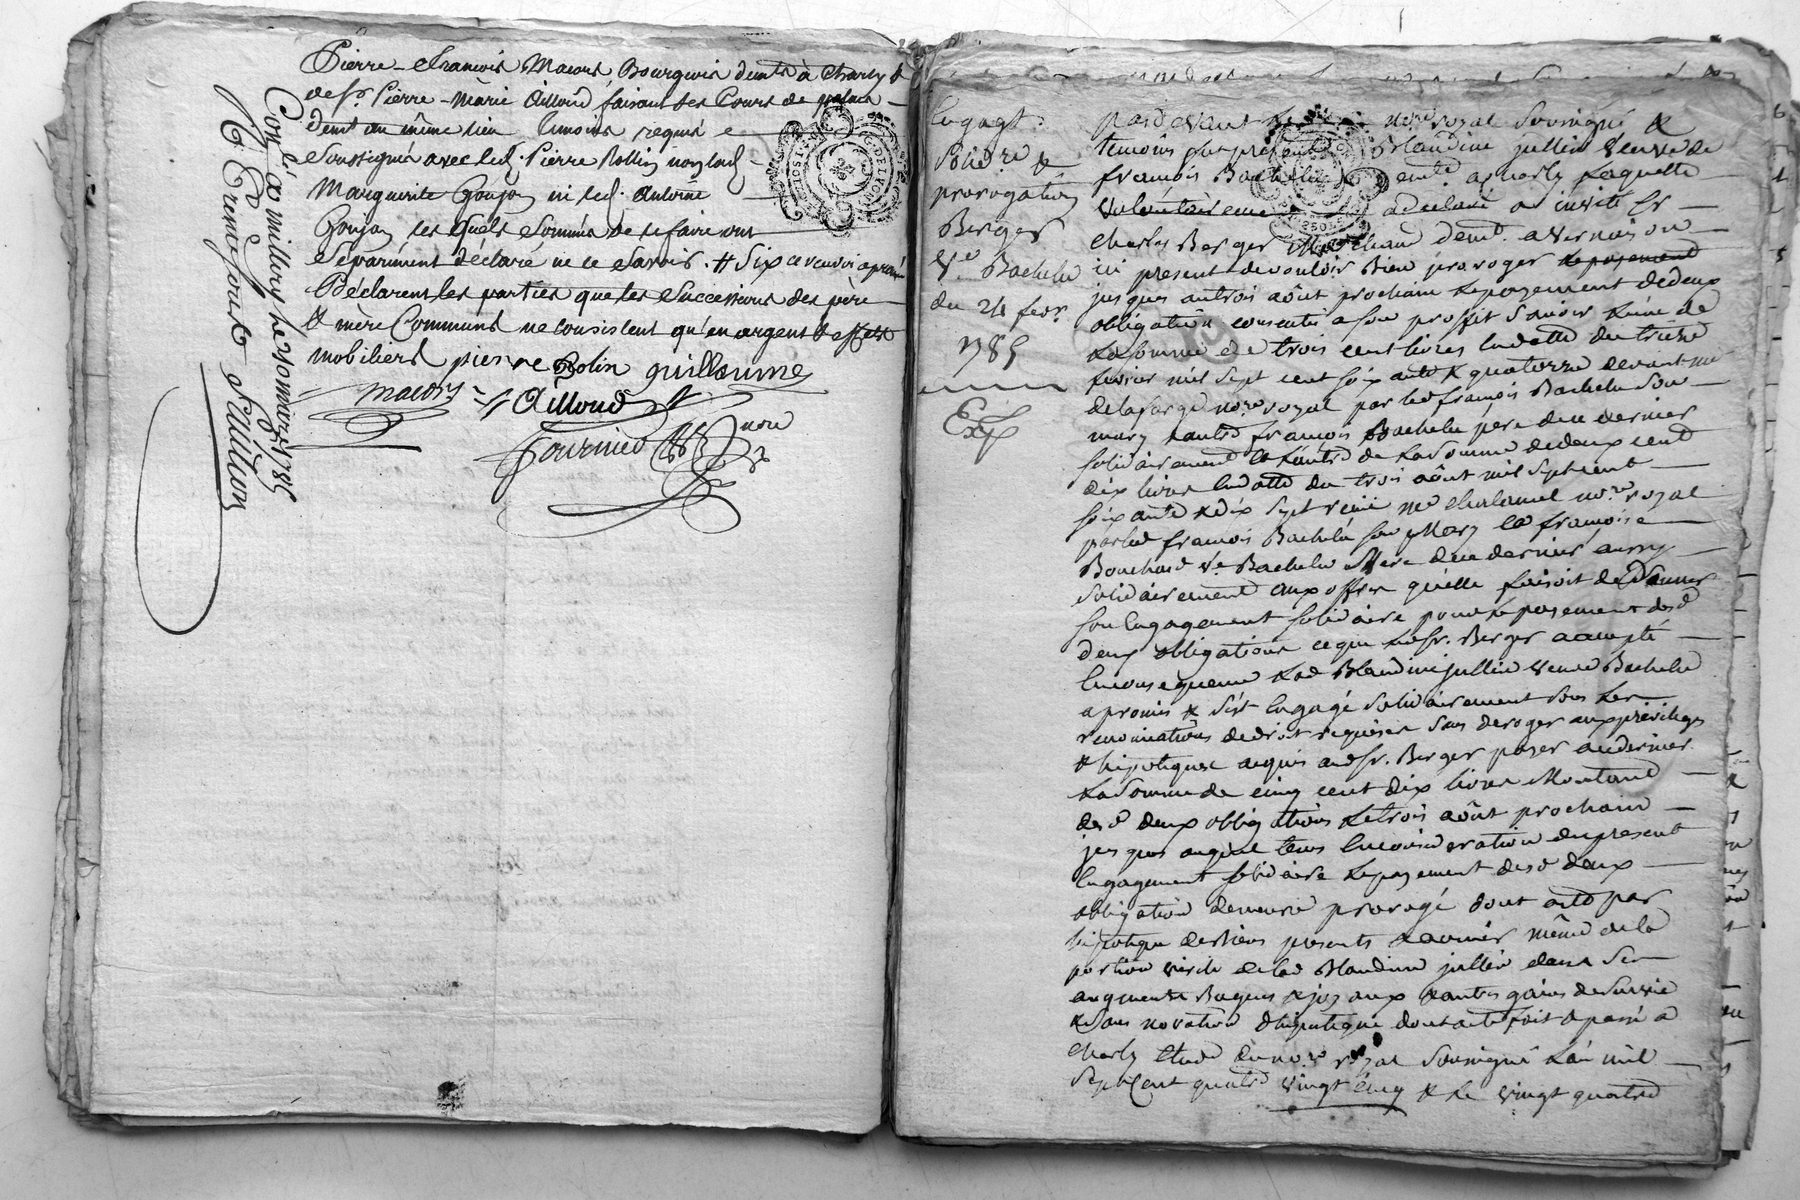 Pierre-François Macors Bourgeois demt. à Charly &
de Sr. Pierre-Marie Ailloud faisant ses Cours de
demt. au même lieu témoins requis &
Soussignés avec led. Pierre Rollin non lad.
Marguerite Goujon ni led. Antoine
Goujon lesquels Sommés de se faire ont
Séparément déclaré ne le Savoir. # Six
Déclarent les parties que les Successions des père
& mère Communs ne consistent qu'en argent & effets
mobiliers pierre Rolin guillaume
macors Ailloud
Fournier nore
Conlé. à millery le 1785
Rs
Engagt.
Solidre &
prorogation
Berger
Ve. Bachelu
du 24 fevr.
1785
Exp
pardevant le nore royal Soussigné &
temoins fut presente Blandine jullien veuve de
françois Bachelu demte. a charly laquelle
volontairement a declaré a invité Sr
charles Berger Marchand demt. a vernaison
ici present de vouloir Bien proroger
jusques au trois août prochain le payement de deux
obligations consenties a son proffit Savoir l'une de
la somme de trois cent livres en datte du treize
fevrier mil sept cent soixante & quatorze devant me
delafarge nore royal par led françois Bachelu Son
mary & autre françois Bachelu pere de ce dernier
solidairement & l'autre de la Somme de deux cent
dix livres en datte du trois août mil sept cent
soixante & dix sept reçu me nore royal
par led françois Bachelu son Mary & françoise
Bouchard ve. Bachelu Mere de ce dernier aussy
solidairement aux offres qu'elle faisoit de donner
son Engagement solidaire pour le payement desd
deux obligations ce que led Sr. Berger a accepté
En consequence lad Blandine jullien veuve Bachelu
a promis & s'est Engagé solidairement sous les
renonciations de droit requises sans deroger aux privileges
& hipotèques acquis aud Sr. Berger payer au dernier
la Somme de cinq cent dix livres Montant
desd deux obligations le trois août prochain
jusques auquel tems En consideration du present
Engagement solidaire le payement desd deux
obligations demeure prorogé dont acte par
hipotèque des biens presents & avenir même de la
portion virile de lad Blandine jullien dans Ses
augment Bagues & joyaux & autres gains de Survie
& Sans novation d'hipotèque dont acte fait & passé a
Charly Etude du nore royal Soussigné l'an mil
Sept Cent quatre vingt cinq & le vingt quatre